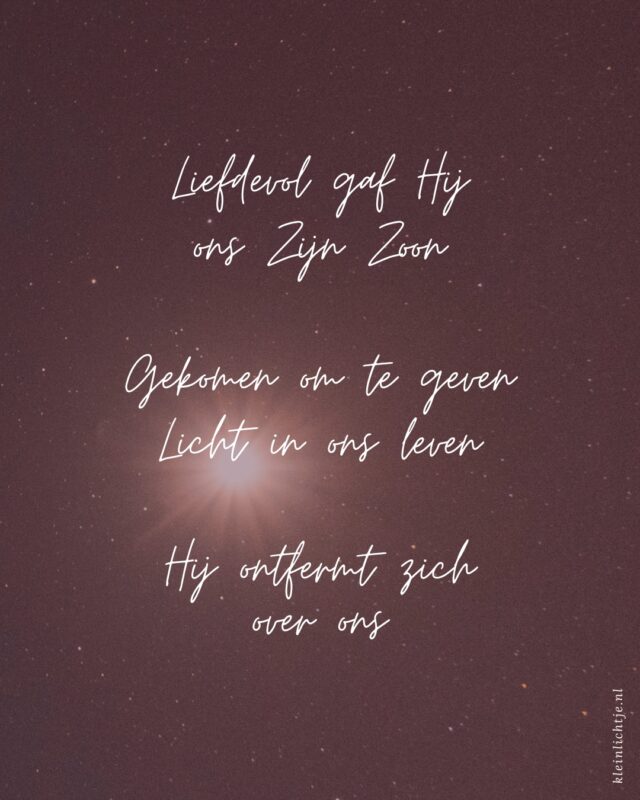 Liefdevol gaf Hij
ons Zijn Zoon
Gekomen om te geven
Licht in ons leven
Hij ontfermt zich
over ons
kleinlichtje.nl